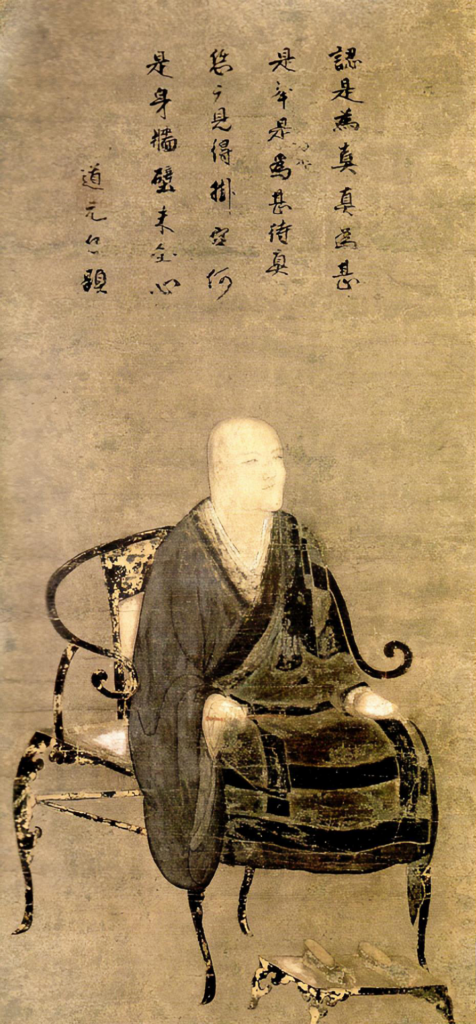 認是為真真為甚
是是為甚待真
恁見得掛空何
是身牆壁未全心
道元題